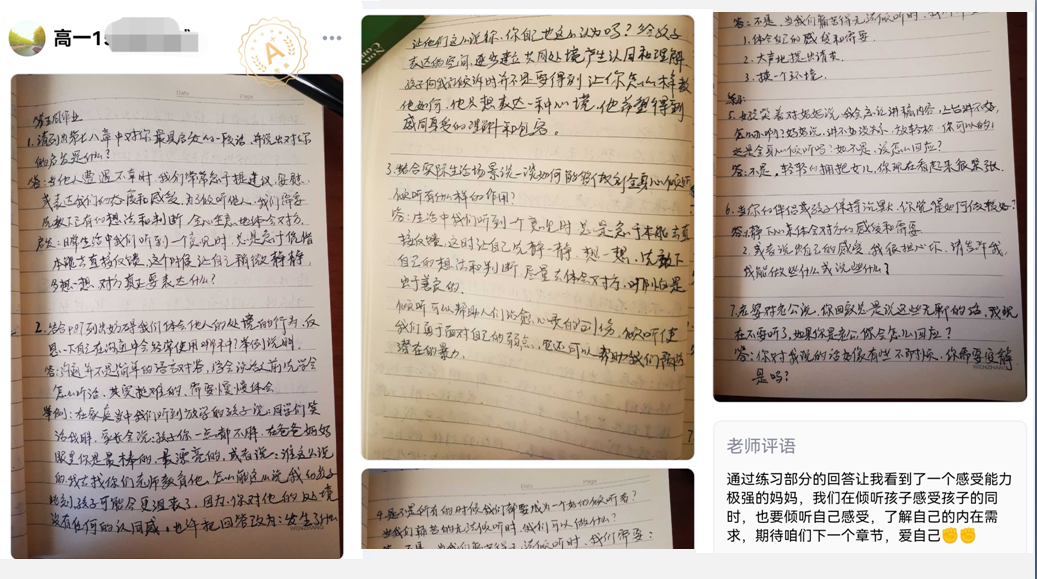 高一1
A
第五周作业
1.请列出第七八章中对你最具启发的一段话，并说出对你
的启发是什么？
答：当他人遭遇不幸时，我们常常急于提建议，安慰，
或表达我们的态度和感受，为了倾听他人，我们需要
放下已有的想法和判断，全心全意地体会对方。
启发：日常生活中我们听到一个意见时，总是急于凭借
本能去直接反馈，这个时候让自己稍微静静，
多想一想，对方真正要表达什么？
2.结合P87列出妨碍我们体会他人的处境的行为，反
思一下自己在沟通中会经常使用哪种？举例说明。
怎么听话，其实挺难的，需要慢慢体会
举例：在家庭当中我们听到放学的孩子说：同学们笑
话我胖，家长会说：孩子你一点都不胖，在爸爸妈妈
眼里你是最棒的，最漂亮的，或者说：谁这么说
的，我去找你们老师教育他，怎么能这么说我的孩子
没有任何的认同感，也许把回答改为：发生了什么
让他们这么说你，你自己也这么认为吗？给孩子
表达的空间，逐步建立共同处境产生认同和理解
孩子向我们倾诉时并不是要得到让你怎么样教
他如何，他只想表达一种心境，他希望得到
感同身受的理解和包容。
3.结合实际生活场景说一说如何能够做到全身心倾听
倾听有什么样的作用？
答：生活中我们听到一个意见时总是急于本能去直
接反馈，这时让自己先静一静，想一想，先放下
自己的想法和判断，尽量去体会对方，
出于善良的。
倾听可以帮助人们治愈心灵的创伤，倾听使
我们勇于面对自己的弱点，它还可以帮助我们预防
潜在的暴力。
4.是不是所有的时候我们都要成为一个好的倾听者？
当我们痛苦的无法倾听时，我们可以做什么？
答：不是，当我们痛苦得无法倾听时，我们需要：
答：不是，当我们痛苦得无法倾听时，我们需要
1.体会自己的感受和需要。
2.大声地提出请求。
3.换一个环境。
5.女儿哭着对妈妈说，我忘记讲稿内容，上台讲不好，
怎么办啊？妈妈说，讲不好没关系，放轻松，你可以的！
这是全身心倾听吗？如不是，该怎么回应？
答：不是，轻轻的拥抱女儿，你现在看起来很紧张。
6.当你的伴侣或孩子保持沉默，你觉得如何做较好？
答：1.静下心来体会对方的感受和需要
2.或者说出自己的感受，我很担心你，请告诉我，
我能做些什么或说些什么？
7.在家你老公说，你回家总是说这些无聊的话，我现
在不要听，如果你是老公你会怎么回应？
答：你对我说的话好像有些不耐烦，你需要安静
是吗？
老师评语
通过练习部分的回答让我看到了一个感受能力
极强的妈妈，我们在倾听孩子感受孩子的同
时，也要倾听自己感受，了解自己的内在需
求，期待咱们下一个章节，爱自己✊✊